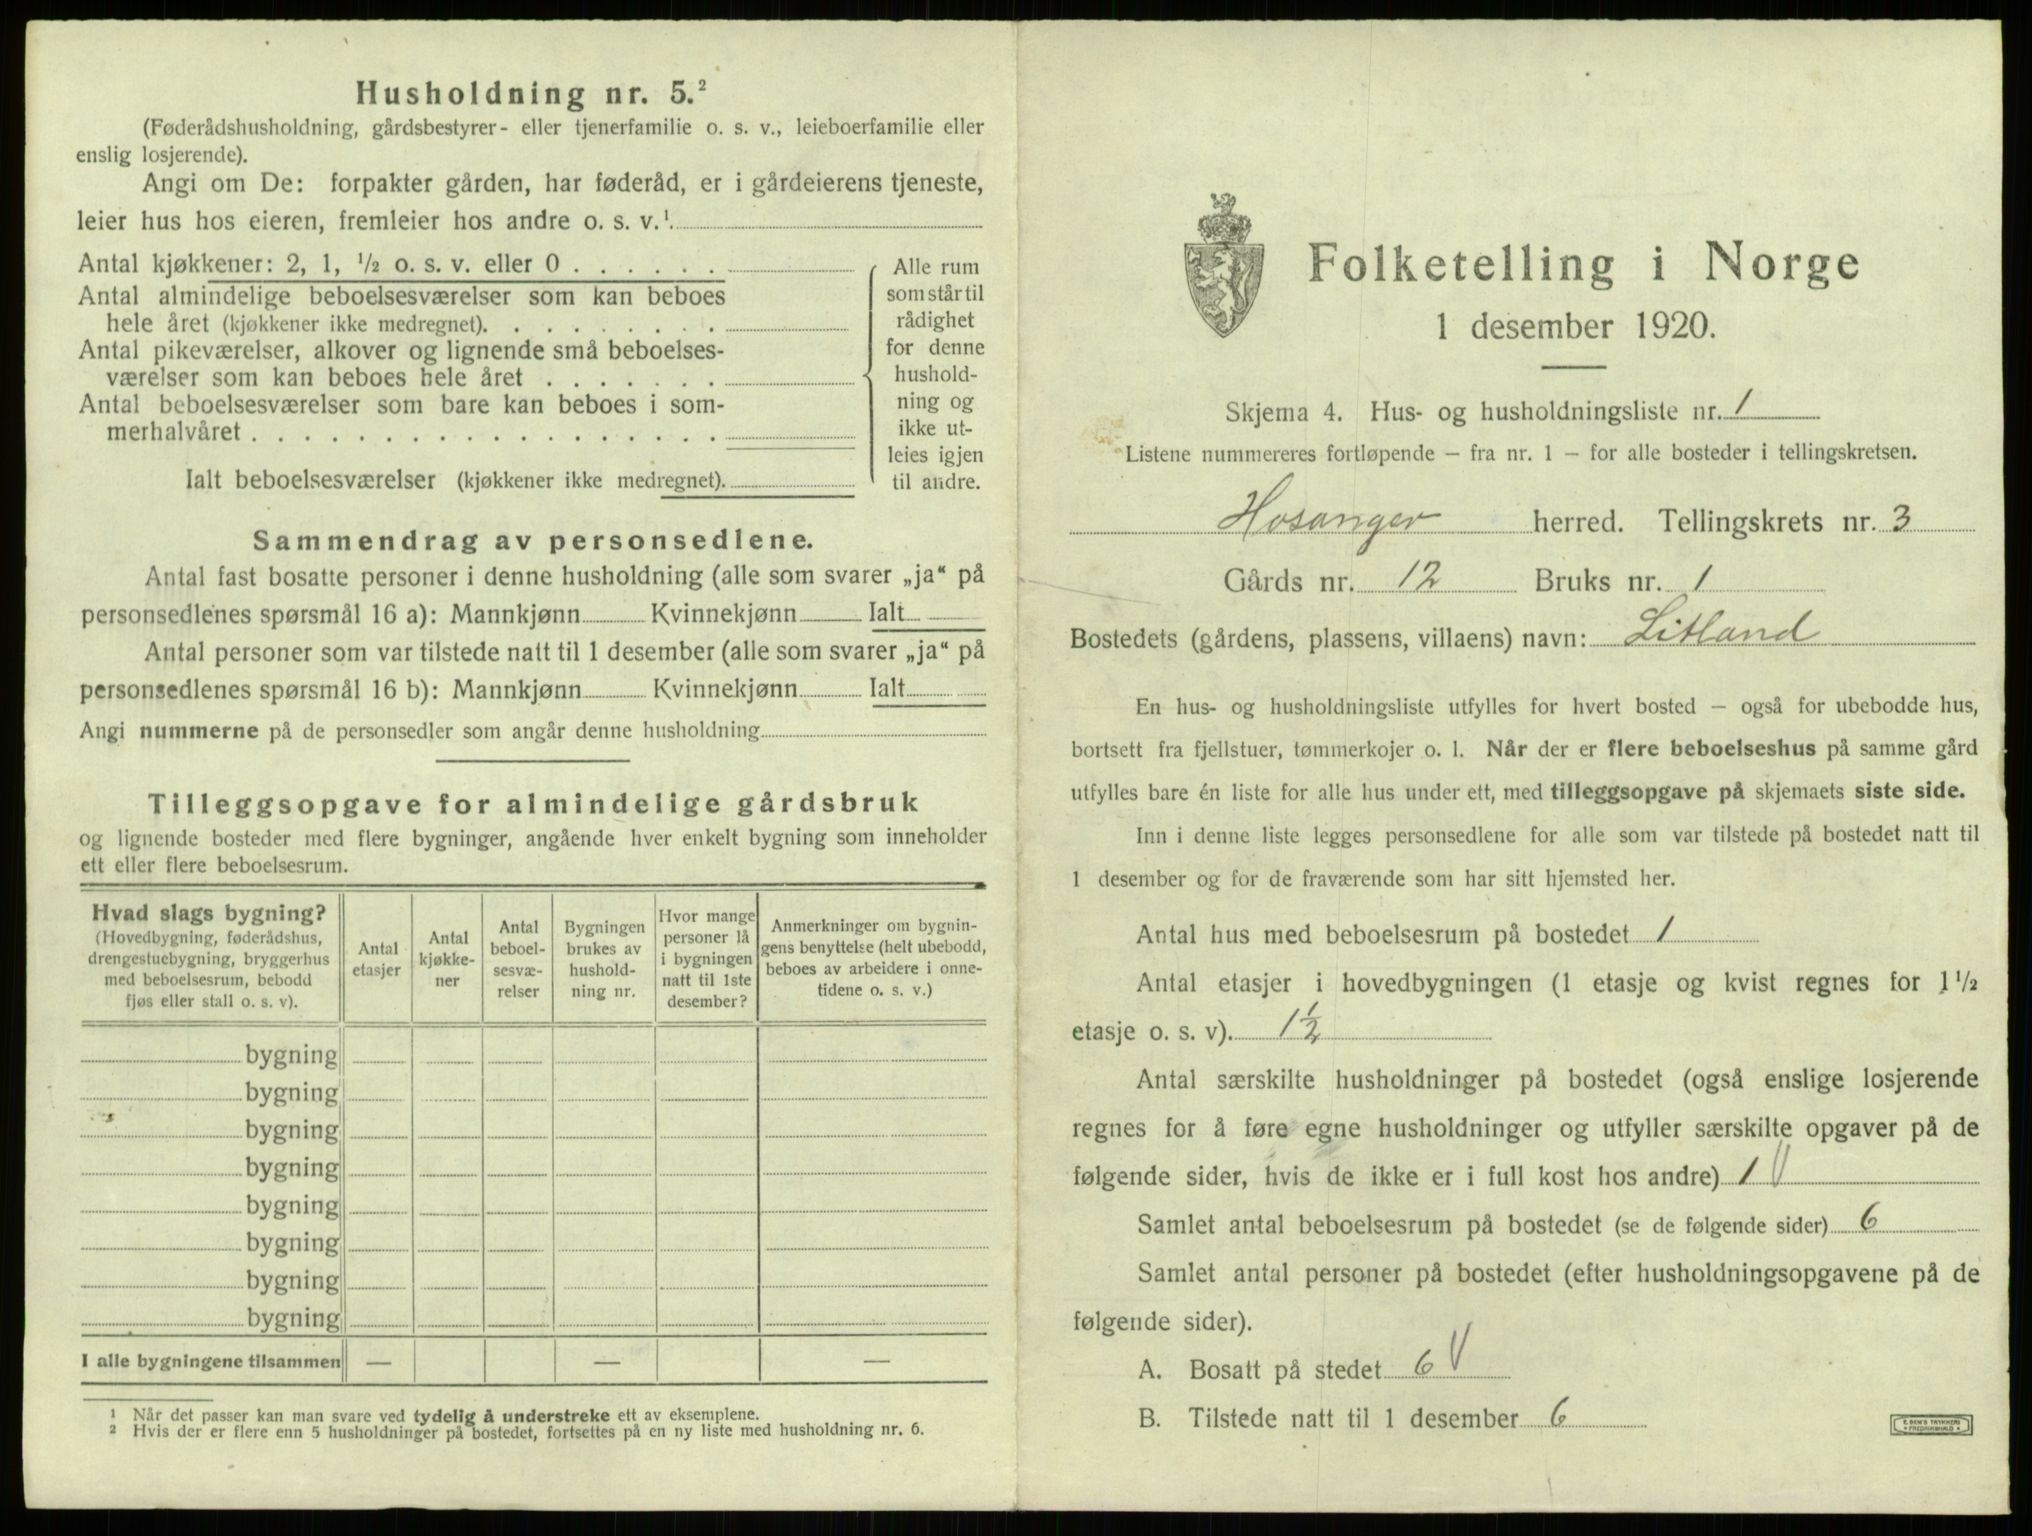 Husholdning nr. 5.²
(Føderådshusholdning, gårdsbestyrer- eller tjenerfamilie o. s. v., leieboerfamilie eller
enslig losjerende).
Angi om De: forpakter gården, har føderåd, er i gårdeierens tjeneste,
leier hus hos eieren, fremleier hos andre o. s. v.¹.
Antal kjøkkener: 2, 1, ½ o. s. v. eller 0 . . . . . .
Antal almindelige beboelsesværelser som kan beboes
hele året (kjøkkener ikke medregnet). . . . . . . . .
Antal pikeværelser, alkover og lignende små beboelses-
værelser som kan beboes hele året . . . . . . .
Antal beboelsesværelser som bare kan beboes i som-
merhalvåret . . . . . . . . . . . . . . . . . .
Ialt beboelsesværelser (kjøkkener ikke medregnet).
Alle rum
som står til
rådighet
for denne
hushold-
ning og
ikke ut-
leies igjen
til andre.
Sammendrag av personsedlene.
Antal fast bosatte personer i denne husholdning (alle som svarer „ja“ på
personsedlenes spørsmål 16 a): Mannkjønn Kvinnekjønn Ialt
Antal personer som var tilstede natt til 1 desember (alle som svarer „ja“ på
personsedlenes spørsmål 16 b): Mannkjønn Kvinnekjønn Ialt
Angi nummerne på de personsedler som angår denne husholdning
Tilleggsopgave for almindelige gårdsbruk
og lignende bosteder med flere bygninger, angående hver enkelt bygning som inneholder
ett eller flere beboelsesrum.
Hvad slags bygning?
(Hovedbygning, føderådshus,
drengestuebygning, bryggerhus
med beboelsesrum, bebodd
fjøs eller stall o. s. v).
Antal
etasjer
Antal
kjøkke-
ner
Antal
beboel-
sesvæ-
relser
Bygningen
brukes av
hushold-
ning nr.
Hvor mange
personer lå
i bygningen
natt til 1ste
desember?
Anmerkninger om bygnin-
gens benyttelse (helt ubebodd,
beboes av arbeidere i onne-
tidene o. s. v.)
bygning
bygning
bygning
bygning
bygning
bygning
bygning
bygning
I alle bygningene tilsammen — — —
¹ Når det passer kan man svare ved tydelig å understreke ett av eksemplene.
² Hvis der er flere enn 5 husholdninger på bostedet, fortsettes på en ny liste med husholdning nr. 6.
Folketelling i Norge
1 desember 1920.
Skjema 4. Hus- og husholdningsliste nr. 1
Listene nummereres fortløpende – fra nr. 1 – for alle bosteder i tellingskretsen.
Hosanger herred. Tellingskrets nr. 3
Gårds nr. 12 Bruks nr. 1
Bostedets (gårdens, plassens, villaens) navn: Litland
En hus- og husholdningsliste utfylles for hvert bosted – også for ubebodde hus,
bortsett fra fjellstuer, tømmerkojer o. l. Når der er flere beboelseshus på samme gård
utfylles bare én liste for alle hus under ett, med tilleggsopgave på skjemaets siste side.
Inn i denne liste legges personsedlene for alle som var tilstede på bostedet natt til
1 desember og for de fraværende som har sitt hjemsted her.
Antal hus med beboelsesrum på bostedet 1
Antal etasjer i hovedbygningen (1 etasje og kvist regnes for 1½
etasje o. s. v). 1½
Antal særskilte husholdninger på bostedet (også enslige losjerende
regnes for å føre egne husholdninger og utfyller særskilte opgaver på de
følgende sider, hvis de ikke er i full kost hos andre) 1
Samlet antal beboelsesrum på bostedet (se de følgende sider) 6
Samlet antal personer på bostedet (efter husholdningsopgavene på de
følgende sider).
A. Bosatt på stedet 6
B. Tilstede natt til 1 desember 6